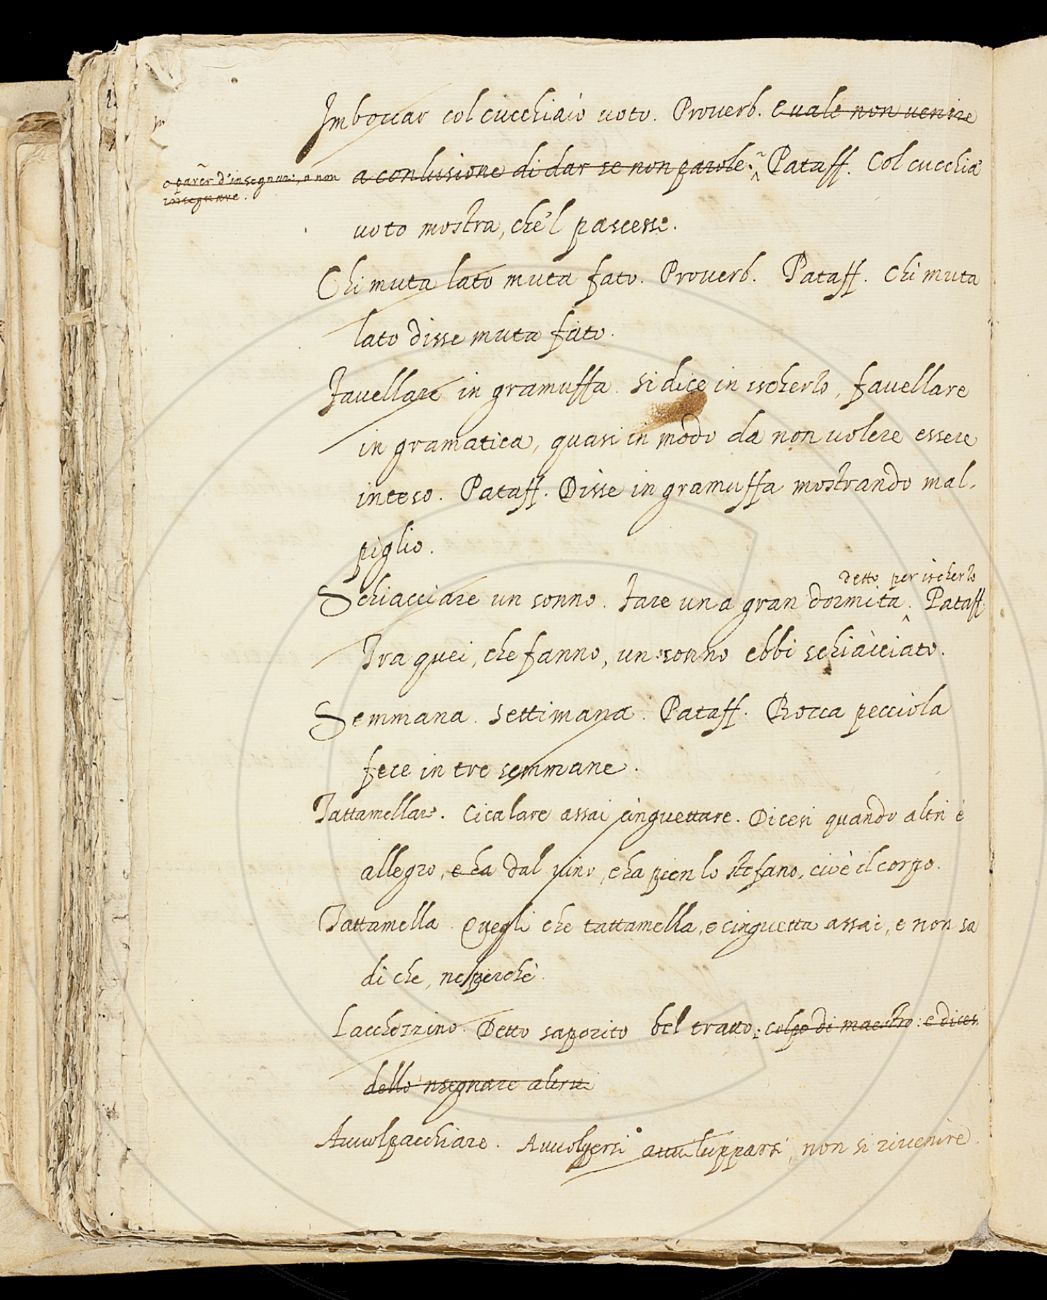 Imboccar col cucchiaio voto. Proverb. E uale non uenire
o parer d'insegnare, e non
insegnare.
a conlusione di dar se non parole. Pataff. Col cucchia'
uoto mostra, che'l pascesse.
Chi muta lato muta fato. Proverb. Pataff. Chi muta
lato disse muta fato.
Fauellare in gramuffa. si dice in ischerzo, fauellare
in gramatica, quasi in modo da non uolere essere
inteso. Pataff. Disse in gramuffa mostrando mal-
piglio.
detto per ischerzo
Schiacciare un sonno. Fare una gran dormita. Pataff
Fra quei, che fanno, un sonno ebbi schiacciato.
Semmana. Settimana. Pataff. Rocca pecciola
fece in tre semmane.
Tattamellare. Cicalare assai cinguettare. Dicesi quando altri è
allegro, e ha dal uino, e ha pien lo stefano, cioè il corpo.
Tattamella. Quegli che tattamella, e cinguetta assai, e non sa
di che, ne perchè.
Lacchezzino. Detto saporito bel tratto, colpo di maestro: e dicesi
dello 'nsegnare altrui
Auuolpacchiare. Auuolgersi auuilupparsi, non si riuenire.